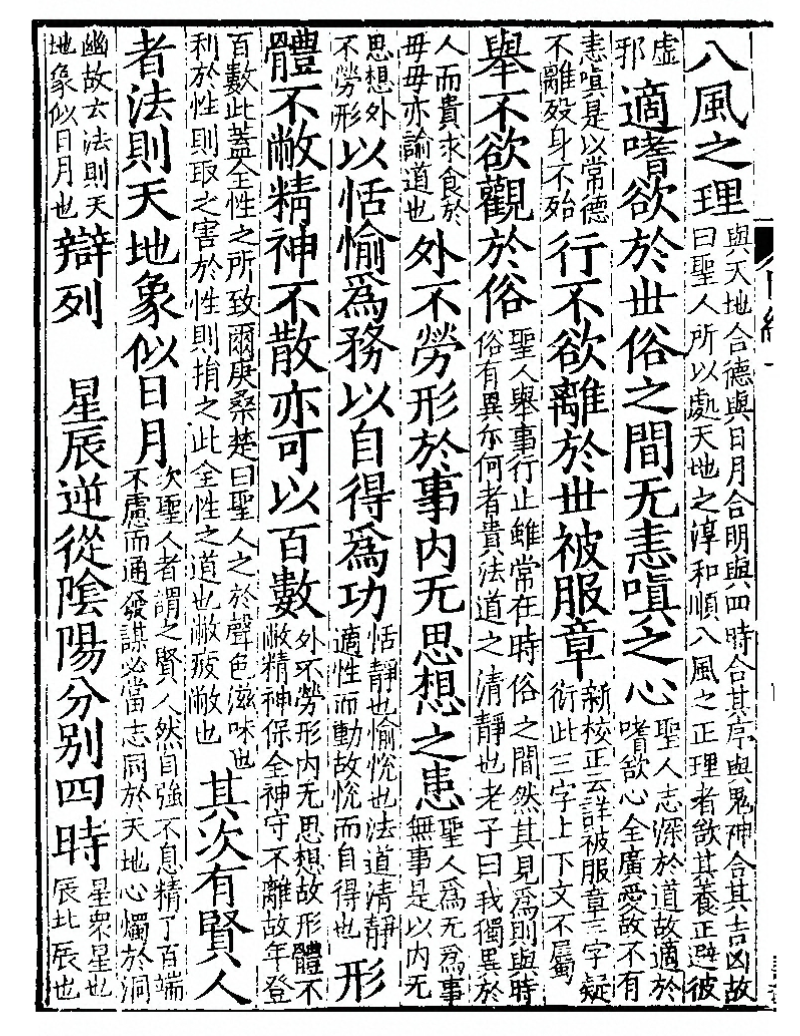 八風之理與天地合德與日月合明與四時合其序與鬼神合其吉凶故曰聖人所以處天地之淳和順八風之正理者欲其養正避彼
虛邪適嗜欲於世俗之間无恚嗔之心聖人志深於道故適於嗜欲心全廣愛故不有
恚嗔是以常德不離歿身不殆行不欲離於世被服章新校正云詳被服章三字疑衍此三字上下文不屬
舉不欲觀於俗聖人舉事行止雖常在時俗之間然其見爲則與時俗有異尒何者貴法道之清靜也老子曰我獨異於
人而貴求食於毋毋亦諭道也外不勞形於事内无思想之患聖人爲无爲事無事是以内无
思想外不勞形以恬愉爲務以自得爲功恬靜也愉悅也法道清靜適性而動故悅而自得也形
體不敝精神不散亦可以百數外不勞形内无思想故形體不敝精神保全神守不離故年登
百數此蓋全性之所致爾庚桑楚曰聖人之於聲色滋味也利於性則取之害於性則捐之此全性之道也敝疲敝也其次有賢人
者法則天地象似日月次聖人者謂之賢人然自強不息精了百端不慮而通發謀必當志同於天地心燭於洞
幽故云法則天地象似日月也辯列 星辰逆從陰陽分别四時星衆星也辰北辰也